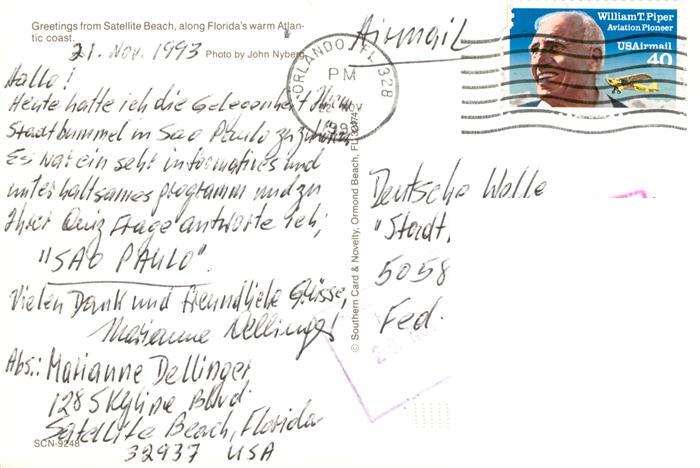 Greetings from Satellite Beach, along Florida's warm Atlan-
tic coast.
21. Nov. 1993 Photo by John Nyberg
Hallo!
Heute hatte ich die Gelegenheit Ihrem
Stadtbummel in Sao Paulo zuzuhören
Es war ein sehr informatives und
unterhaltsames programm und zu
Ihrer Quiz Frage antworte ich,
"SAO PAULO".
Vielen Dank und freundliche Grüsse,
Marianne Dellinger
Abs.: Marianne Dellinger
128 Skyline Blvd.
Satellite Beach, Florida
32937 USA
SCN-9248
© Southern Card & Novelty, Ormond Beach, FL 32174
Airmail
ORLANDO, FL 328
PM
NOV
William T. Piper
Aviation Pioneer
USAirmail
40
Deutsche Welle
"Stadt
5058
Fed.